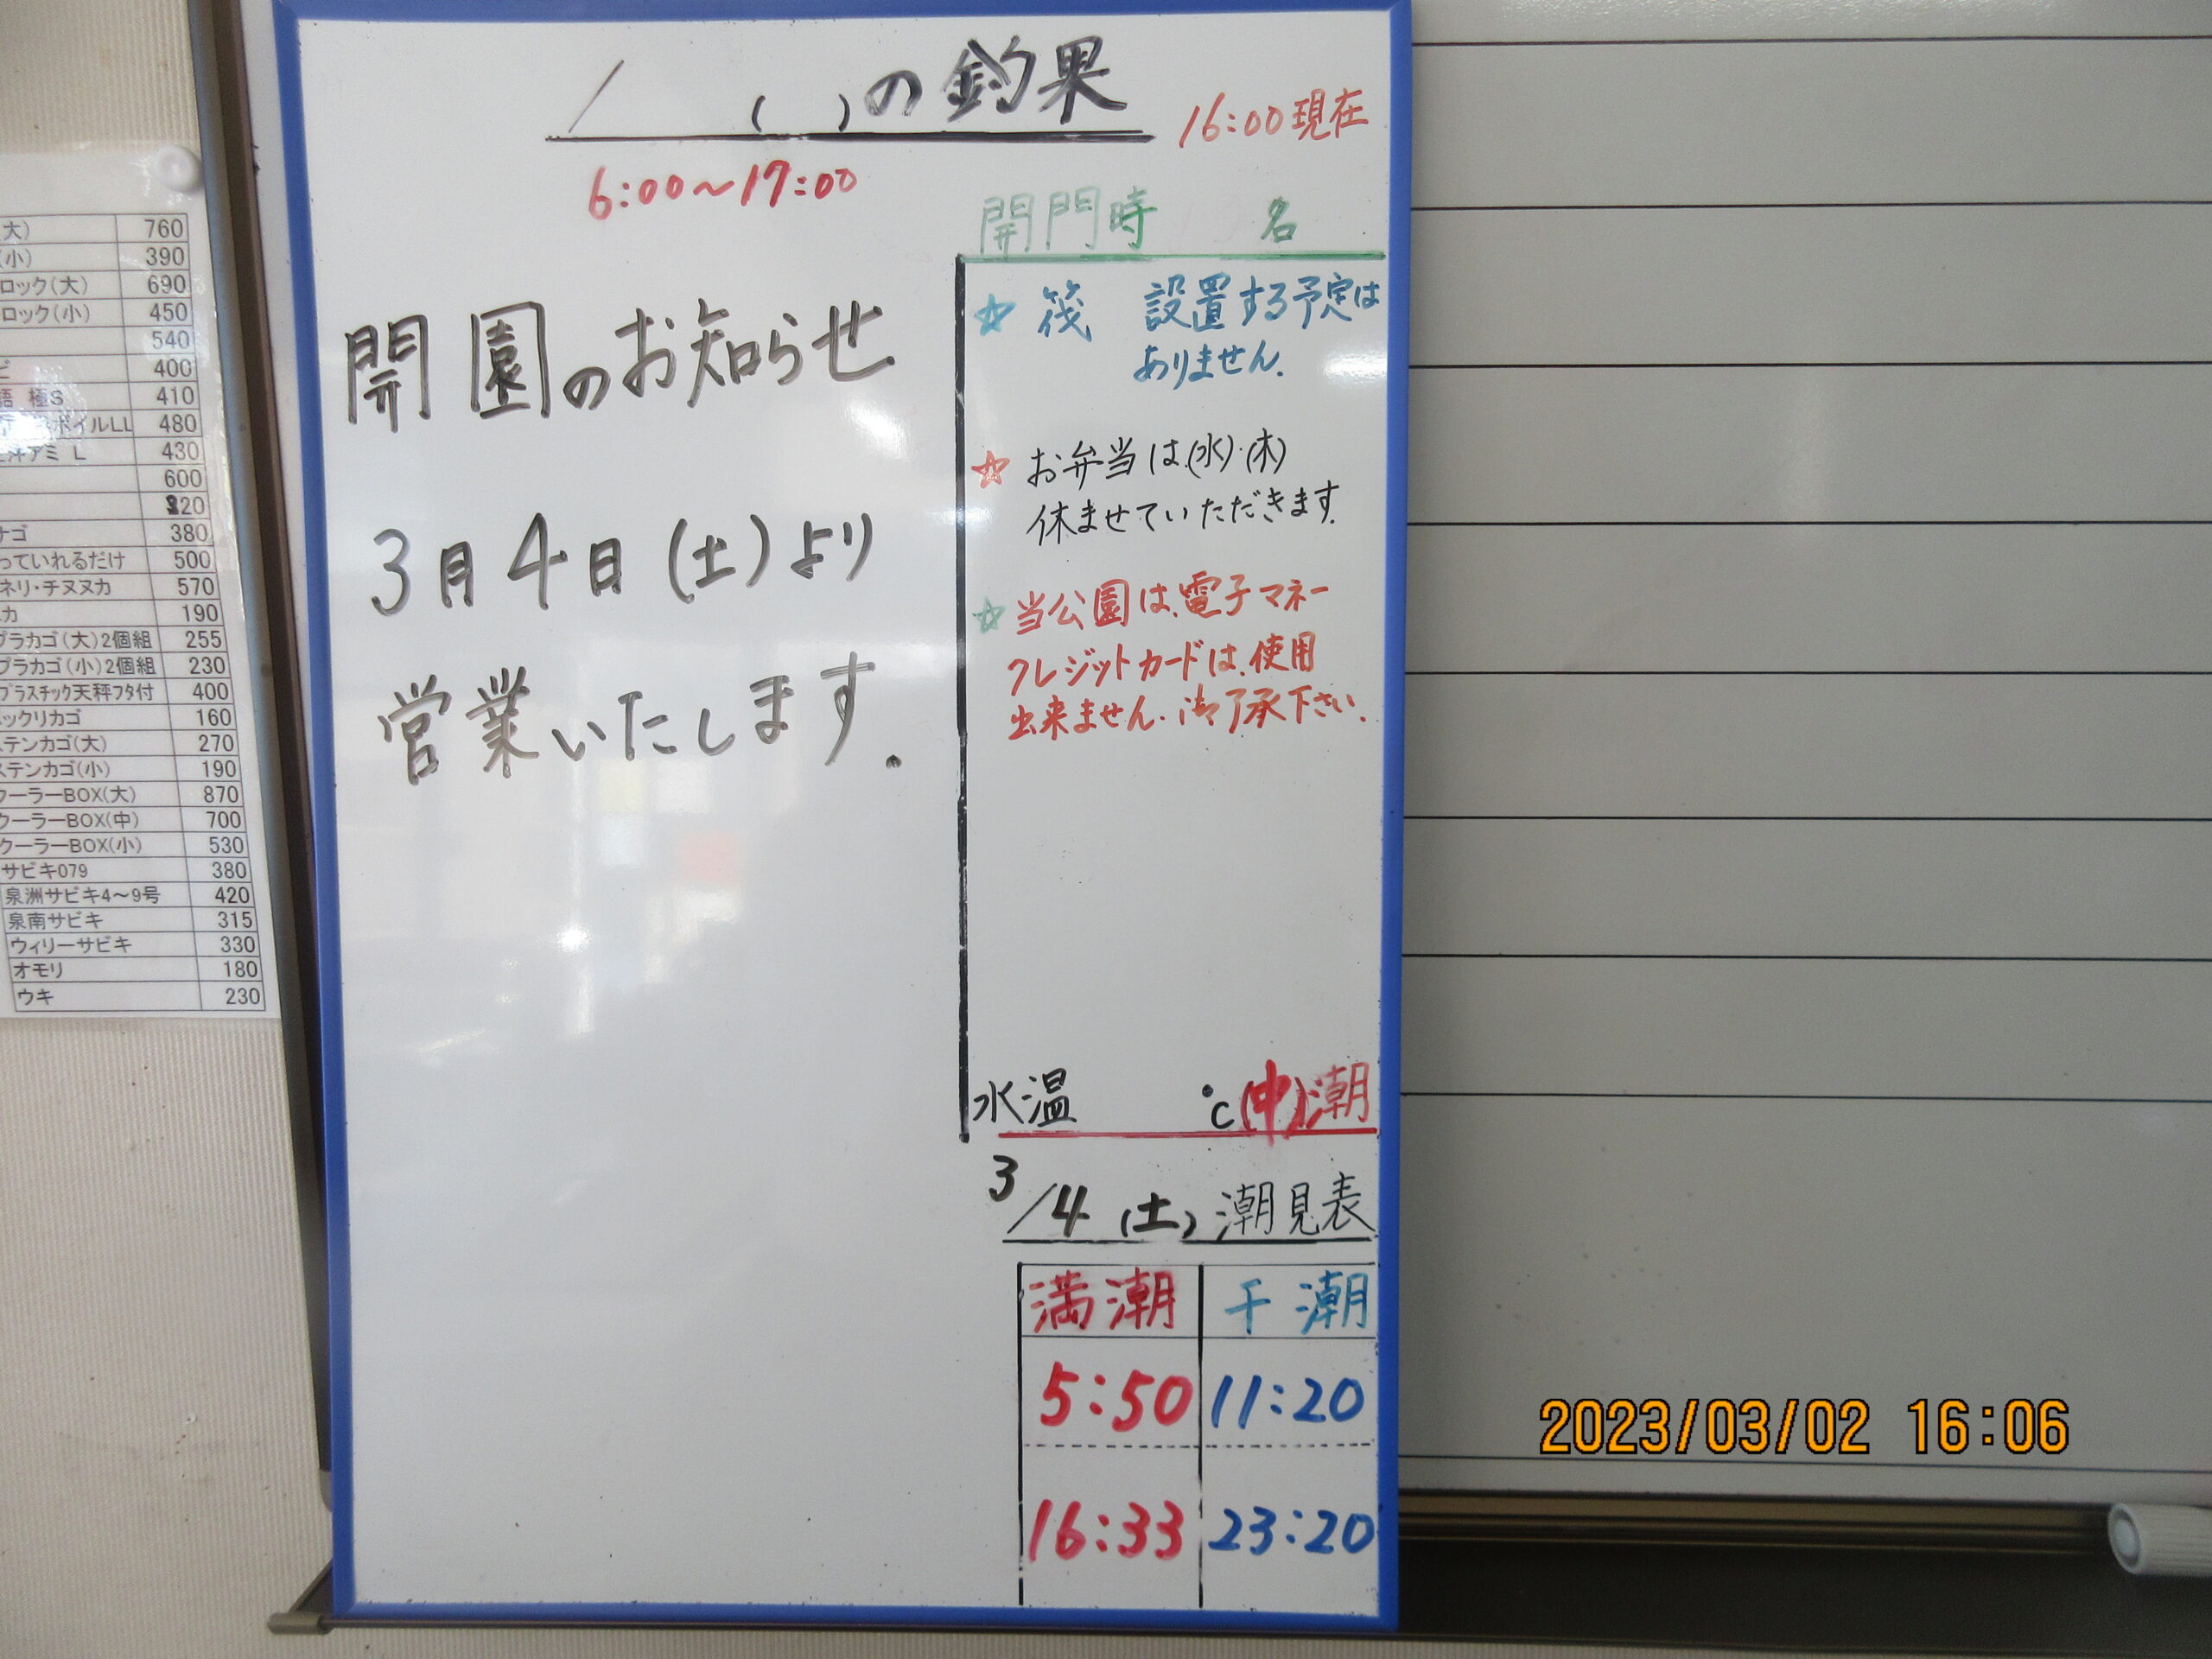 ／　（　）の釣果
16:00現在
6:00～17:00
開園のお知らせ
3月4日（土）より
営業いたします.
開門時　名
☆ 筏　設置する予定は
ありません.
☆ お弁当は(水)・(木)
休ませていただきます.
☆ 当公園は、電子マネー
クレジットカードは、使用
出来ません. 御了承下さい.
水温　℃(中)潮
3/4（土）潮見表
満潮 干潮
5:50 11:20
16:33 23:20
(大) 760
(小) 390
ロック(大) 690
ロック(小) 450
540
400
極S 410
ボイルLL 480
アミ L 430
600
320
ナゴ 380
っていれるだけ 500
ネリ・チヌヌカ 570
カ 190
プラカゴ(大)2個組 255
プラカゴ(小)2個組 230
プラスチック天秤フタ付 400
ックリカゴ 160
ステンカゴ(大) 270
ステンカゴ(小) 190
クーラーBOX(大) 870
クーラーBOX(中) 700
クーラーBOX(小) 530
サビキ079 380
泉洲サビキ4～9号 420
泉南サビキ 315
ウィリーサビキ 330
オモリ 180
ウキ 230
2023/03/02 16:06